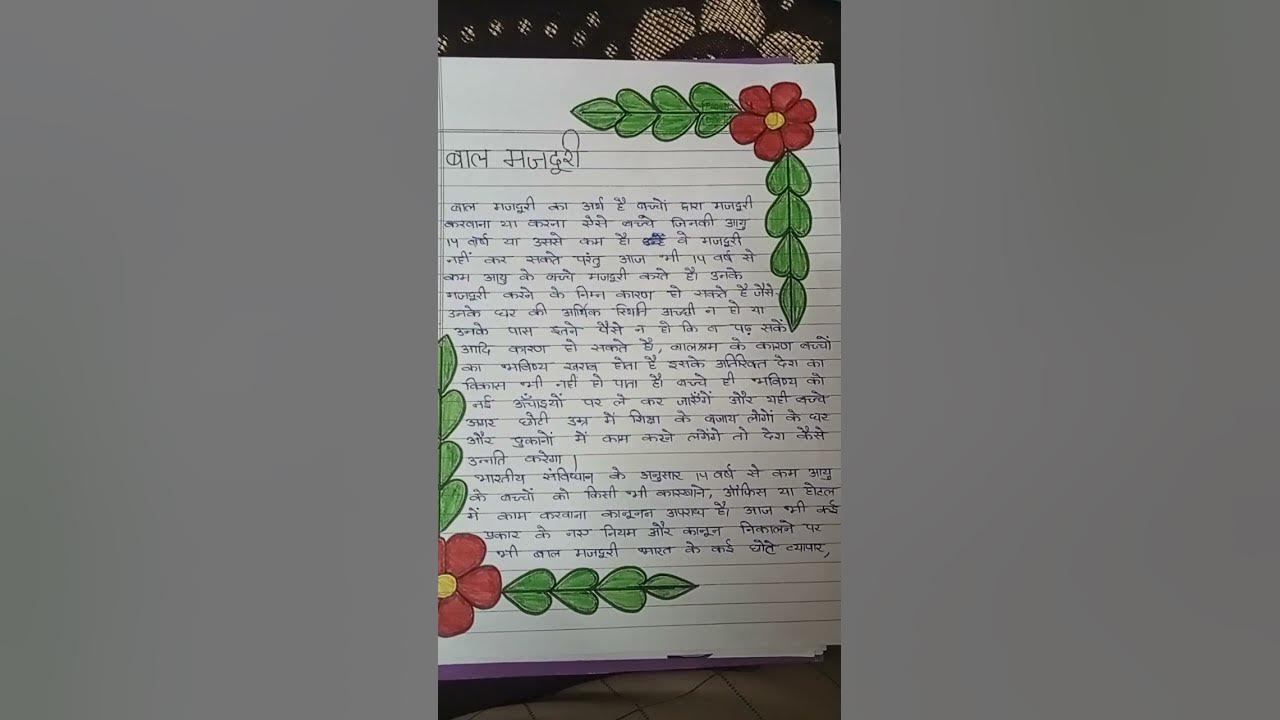 बाल मजदूरी
बाल मजदूरी का अर्थ है बच्चों द्वारा मजदूरी
करवाना या करना ऐसे बच्चे जिनकी आयु
14 वर्ष या उससे कम है। वे मजदूरी
नहीं कर सकते परंतु आज भी 14 वर्ष से
कम आयु के बच्चे मजदूरी करते है। उनके
मजदूरी करने के निम्न कारण हो सकते है जैसे-
उनके घर की आर्थिक स्थिति अच्छी न हो या
उनके पास इतने पैसे न हो कि व पढ़ सकें
आदि कारण हो सकते है, बालश्रम के कारण बच्चों
का भविष्य खराब होता है इसके अतिरिक्त देश का
विकास भी नहीं हो पाता है। बच्चे ही भविष्य को
नई ऊँचाइयों पर ले कर जाएँगें और यही बच्चे
अगर छोटी उम्र में शिक्षा के बजाय लोगों के घर
और दुकानों में काम करने लगेंगे तो देश कैसे
उन्नति करेगा।
भारतीय संविधान के अनुसार 14 वर्ष से कम आयु
के बच्चों को किसी भी कारखाने, ऑफिस या होटल
में काम करवाना कानूनन अपराध है। आज भी कई
प्रकार के नए नियम और कानून निकालने पर
भी बाल मजदूरी भारत के कई छोटे व्यापार,